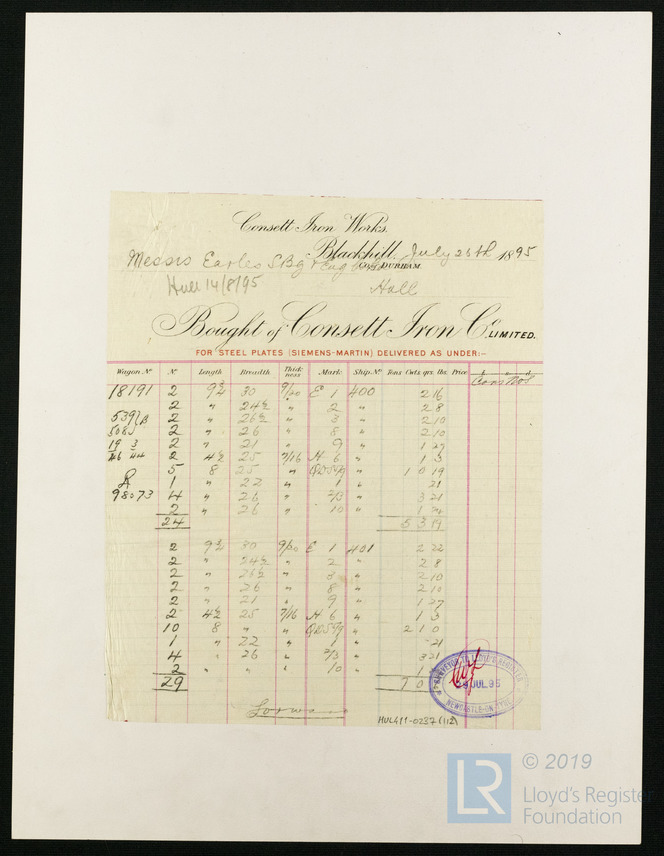 Consett Iron Works.
Blackhill, July 25th 1895
Co. DURHAM.
Messrs Earles S.Bg & Eng Co
Hull 14/8/95 Hull
Bought of Consett Iron Co. LIMITED.
FOR STEEL PLATES (SIEMENS-MARTIN) DELIVERED AS UNDER:-
Wagon No No Length Breadth Thickness Mark Ship. No Tons Cwts qrs. lbs. Price £ s d
18191 2 9¾ 30 9/20 E 1 400 2 16
2 " 24½ " 2 " 2 8
2 " 26½ " 3 " 2 10
2 " 26 " 8 " 2 10
2 " 21 " 9 " 1 27
2 4½ 25 7/16 H 6 " 1 3
5 8 25 " " 1 0 19
1 " 22 " 1 " 21
98073 4 " 26 " 2/3 " 3 21
2 " 26 " 10 "
24 5 3 19
2 9¾ 30 9/20 E 1 401 2 22
2 " 24½ " 2 " 2 8
2 " 26½ " 3 " 2 10
2 " 26 " 8 " 2 10
2 " 21 " 9 " 1 27
2 4½ 25 7/16 H 6 " 1 3
10 8 " " " 2 1 0
1 " 22 " 1 " 21
4 " 26 " 2/3 " 3 21
2 " " " 10 "
29 7 0
SURVEYOR TO LLOYD'S REGISTER
JUL.95
NEWCASTLE-ON-TYNE
HUL411-0237 (112)
LR © 2019
Lloyd's Register
Foundation